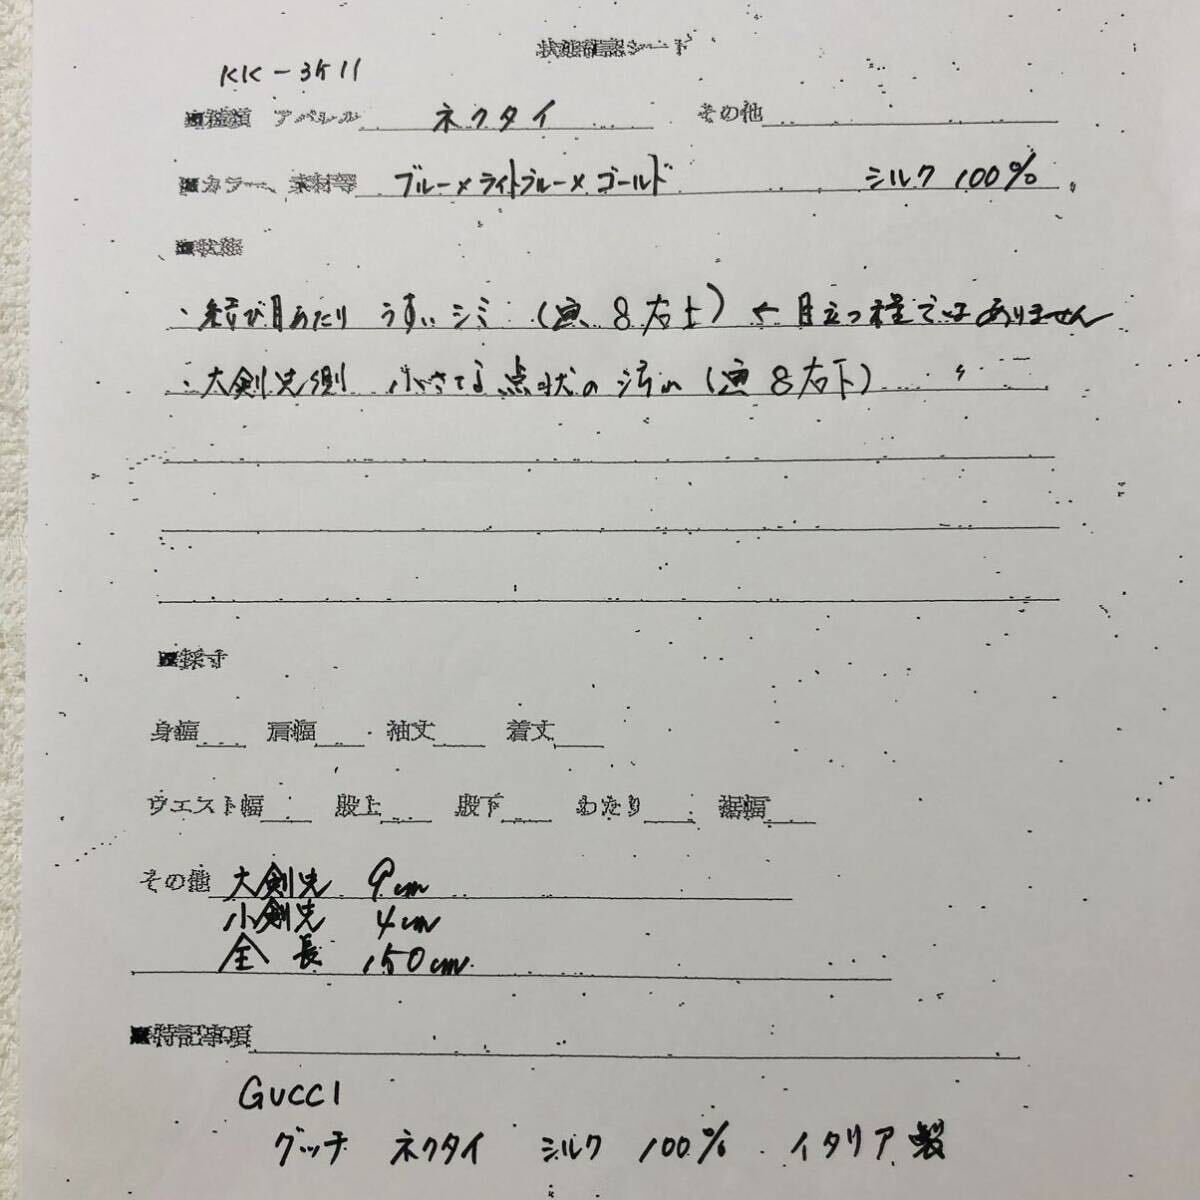 状態確認シート
KK-3511
■種類 アパレル ネクタイ その他
■カラー、素材等 ブルー×ライトブルー×ゴールド シルク 100%
■状態
・結び目あたり うすいシミ (画 8右上) ← 目立つ程ではありません
・大剣先側 小さな点状の汚れ (画 8右下)
■採寸
身幅 肩幅 袖丈 着丈
ウエスト幅 股上 股下 わたり 裾幅
その他 大剣先 9cm
小剣先 4cm
全長 150cm
■特記事項
GUCCI
グッチ ネクタイ シルク 100% イタリア製